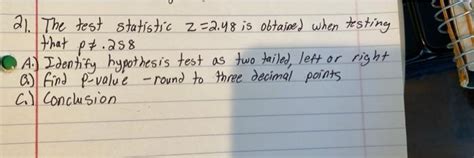 21. The test statistic z=2.48 is obtained when testing
that p≠.258
A.) Identify hypothesis test as two tailed, left or right
a) find P-value - round to three decimal points
C.) Conclusion